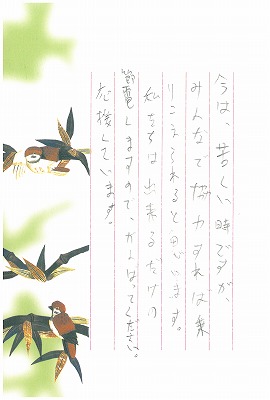 今は、苦しい時ですが、
みんなで協力すれば乗
りこえられると思います。
私たちは出来るだけの
節電しますので、がんばってください。
応援しています。